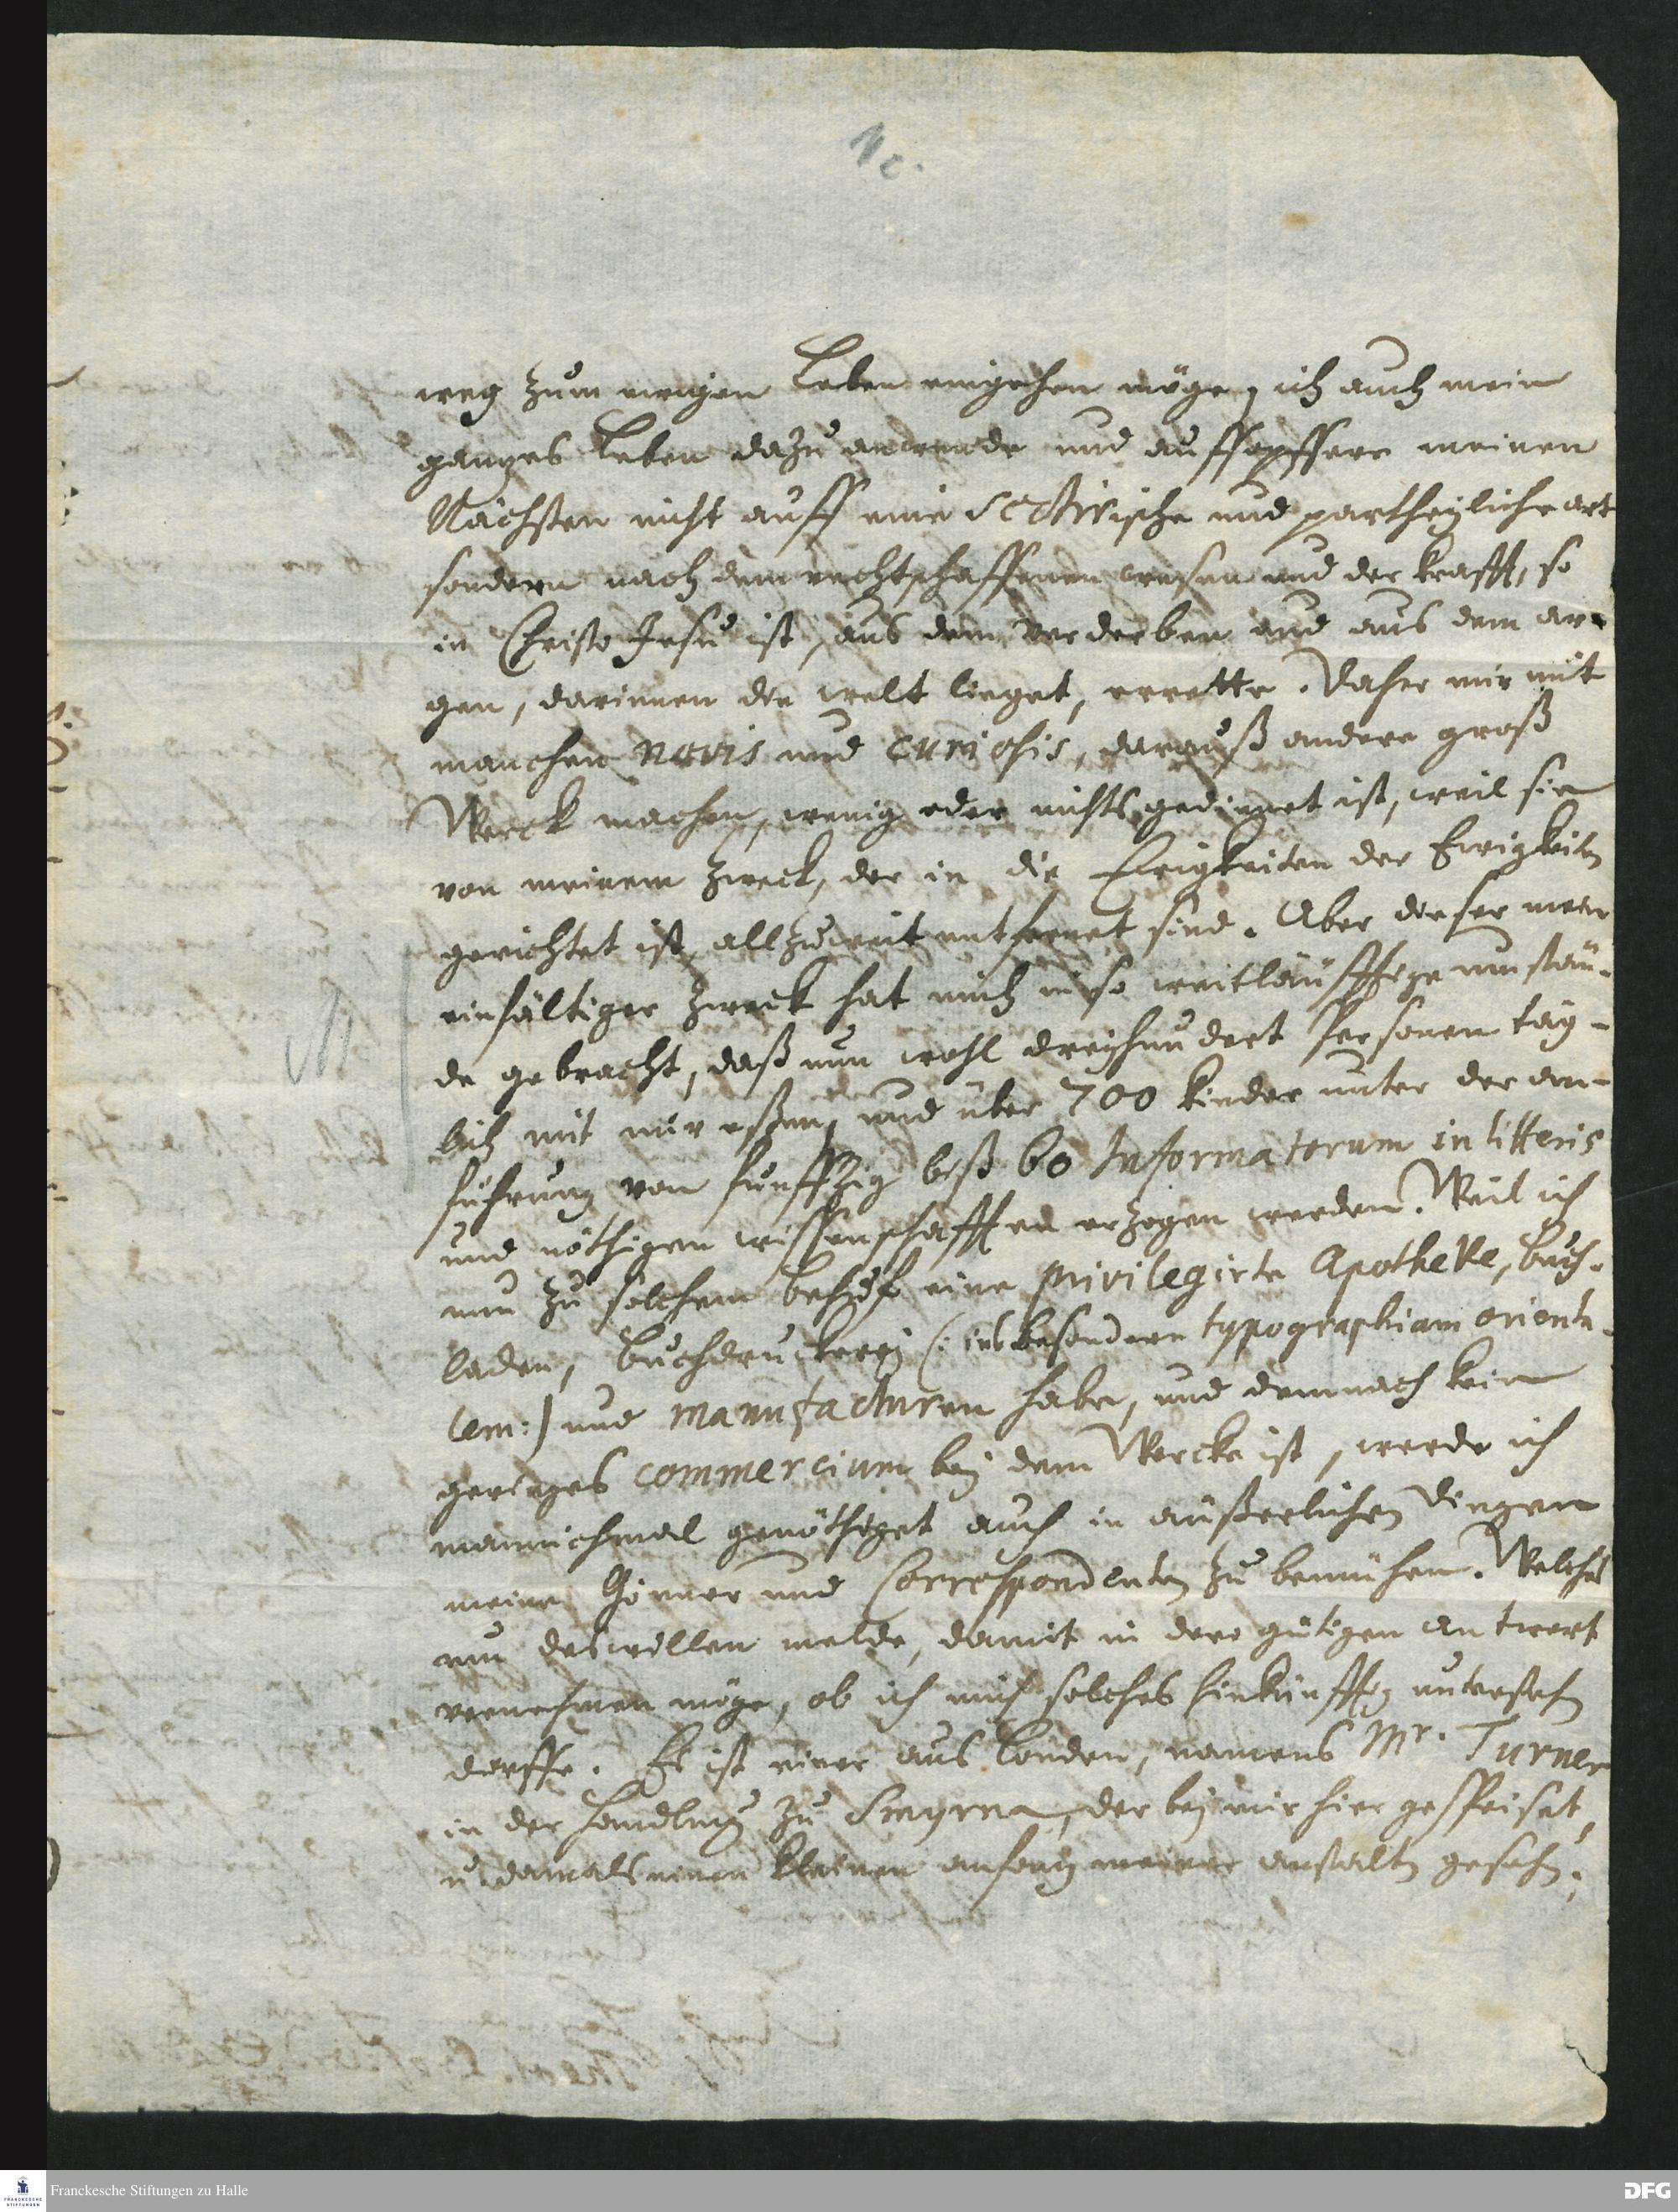 1c.
weg zum ewigen Leben eingehen möge, ich auch mein
ganzes Leben dazu anwende und auffopffere meinen
Nächsten nicht auff eine Sectirische und partheyliche art
sondern nach dem rechtschaffenen wesen und der krafft, so
in Christo Jesu ist, aus dem verderben und aus dem ar-
gen, darinnen die welt lieget, errette. Daher mir mit
manchen novis und curiosis, darauß andere groß
Werck machen, wenig oder nichts gedienet ist, weil sie
von meinem Zweck, der in die Ewigkeiten der Ewigkeiten
gerichtet ist, allzuweit entfernet sind. Aber dieser mein
einfältiger Zweck hat mich in so weitläufftige umstän-
de gebracht, daß nun wohl dreyhundert Personen täg-
lich mit mir eßen, und über 700 kinder unter der an-
führung von funffzig biß 60 Informatorum in litteris
und nöthigen wissenschafften erzogen werden. Weil ich
nun zu solchem behuf eine privilegirte Apotheke, buch-
laden, buchdruckerey (: insbesondere typographiam orienta-
lem:) und manufacturen habe, und demnach kein
geringes commercium bey dem Wercke ist, werde ich
mannichmal genöthiget auch in äußerlichen dingen
meine Gönner und Correspondenten zu bemühen. Welches
um deswillen melde, damit in dero gütigen antwort
vernehmen möge, ob ich mich solches hinkünfftig unterstehen
dörffe. Es ist einer aus Londen, namens Mr. Turner
in der handlung zu Smyrna, der bey mir hier gespeiset,
u. damals einen kleinen anfang meiner anstalten gesehen;
Franckesche Stiftungen zu Halle
DFG